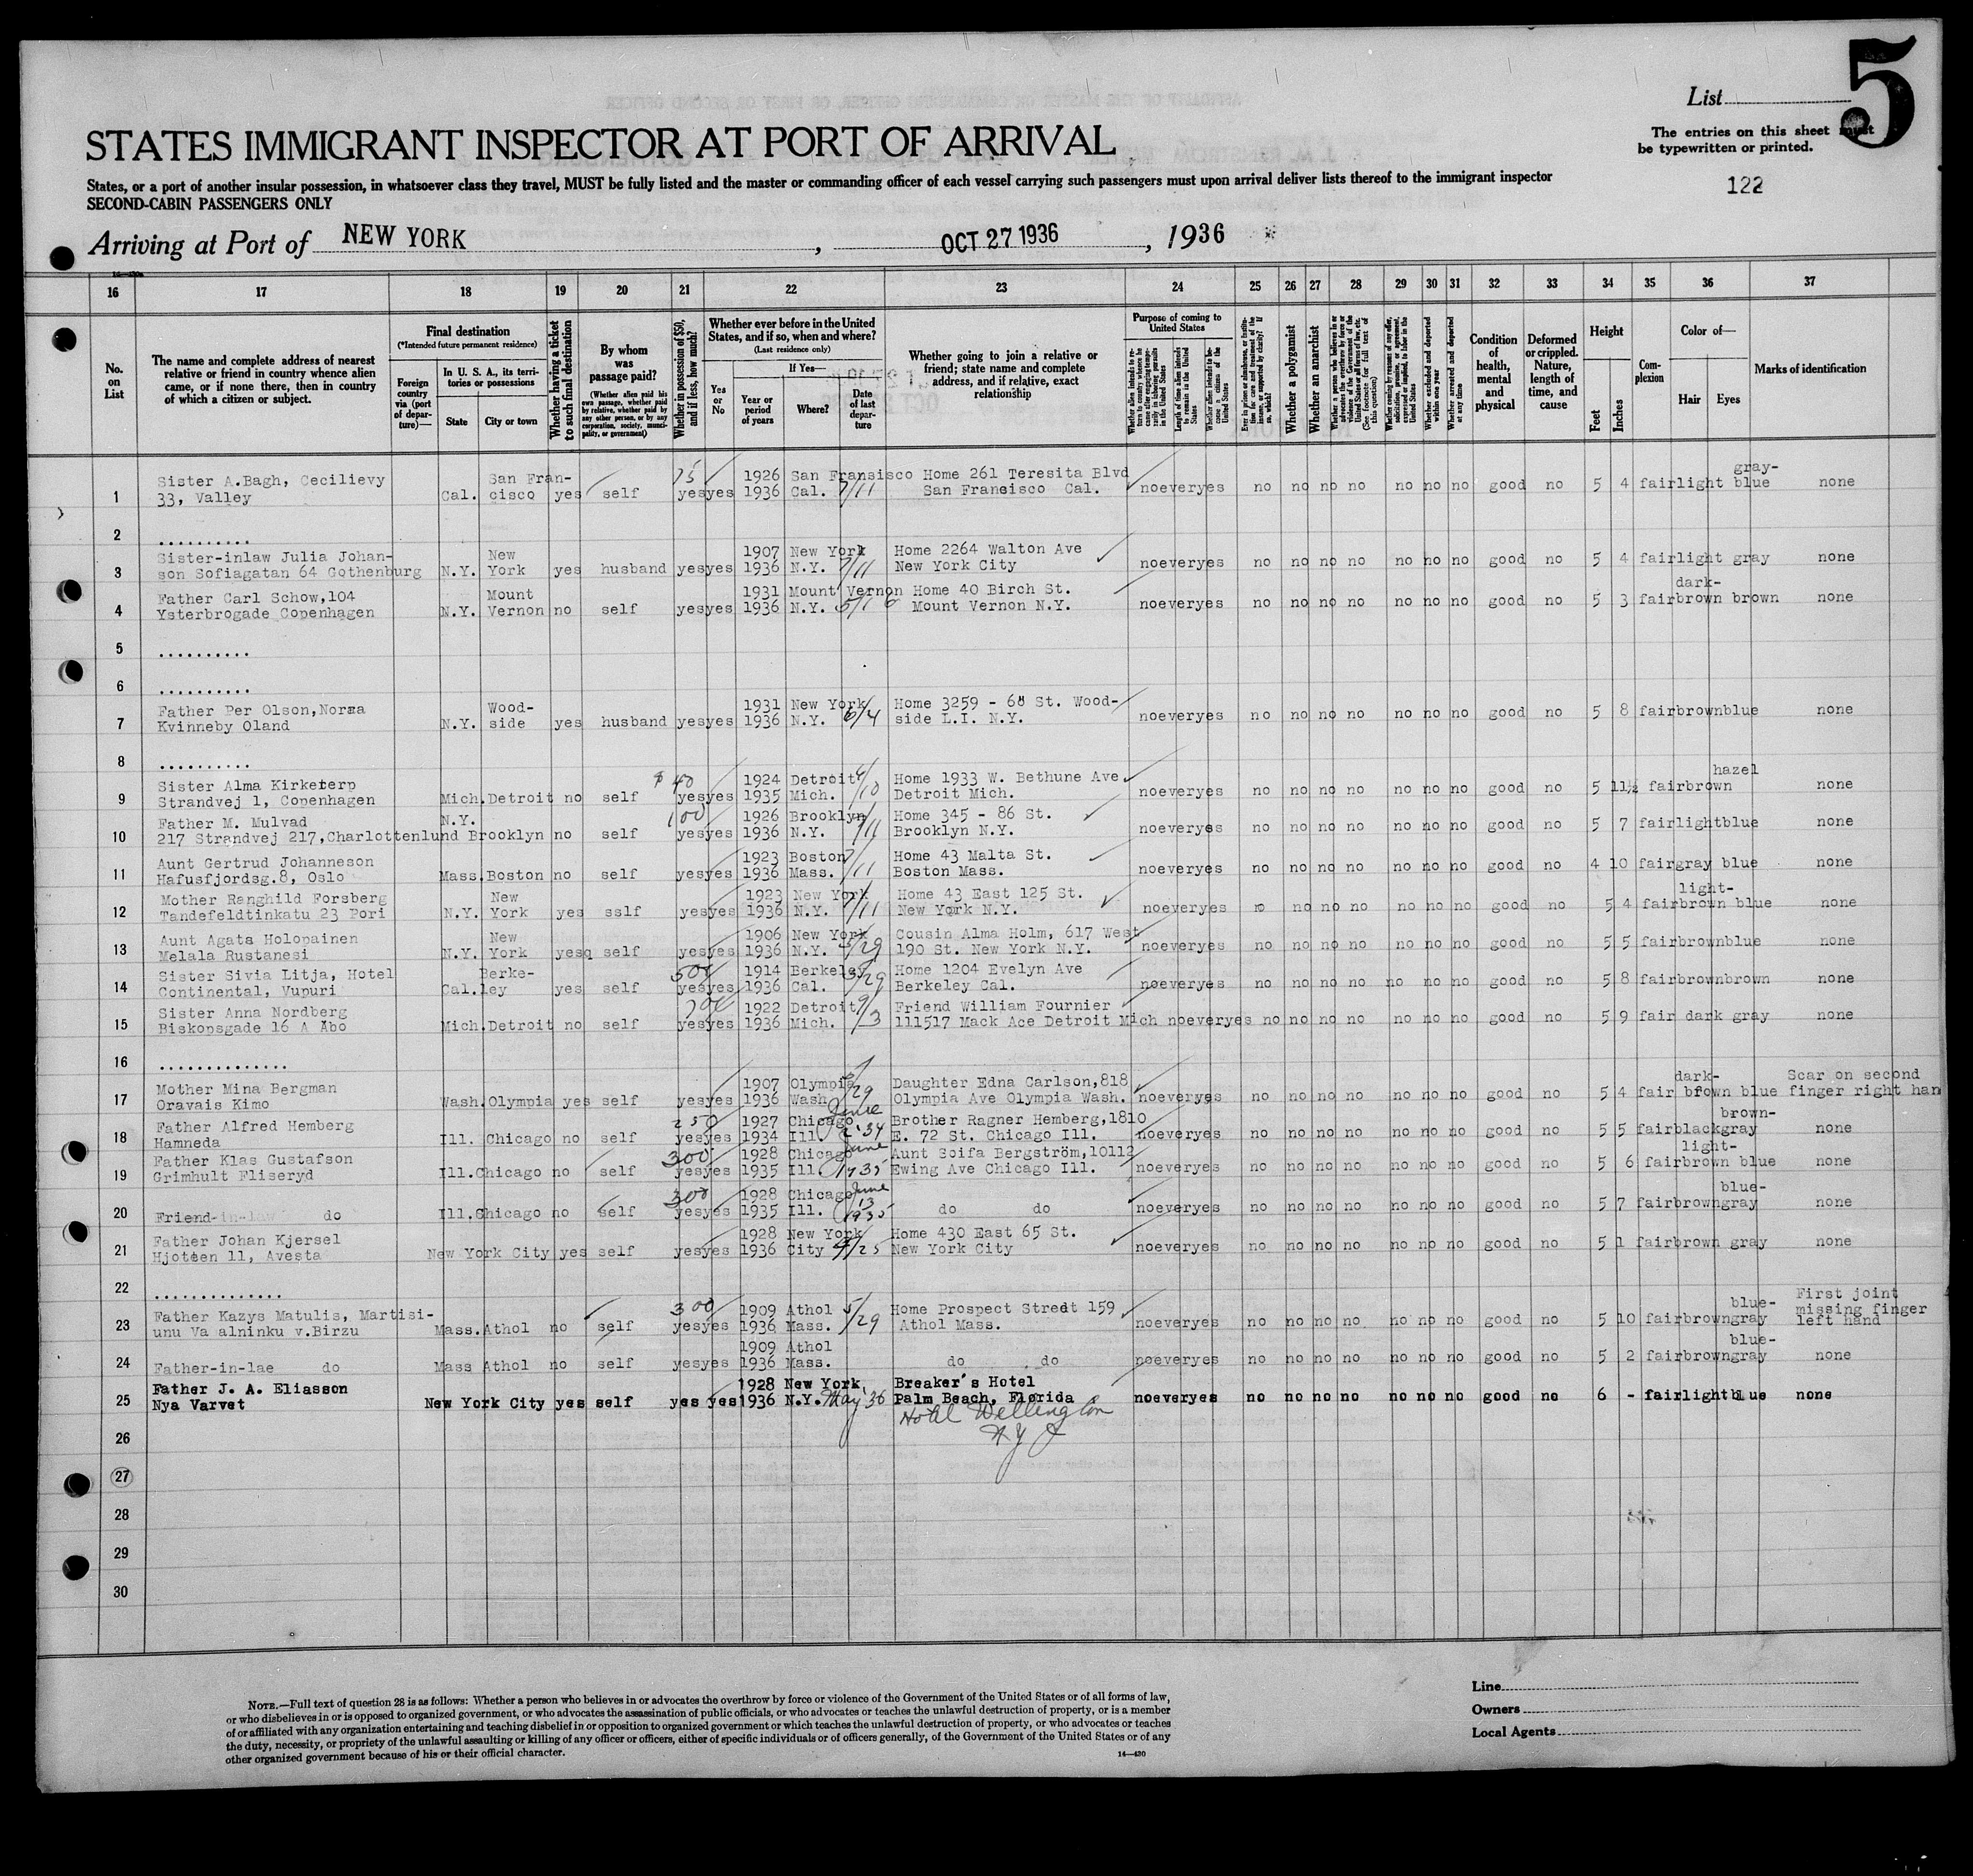 List
5
The entries on this sheet must
be typewritten or printed.
122
STATES IMMIGRANT INSPECTOR AT PORT OF ARRIVAL
States, or a port of another insular possession, in whatsoever class they travel, MUST be fully listed and the master or commanding officer of each vessel carrying such passengers must upon arrival deliver lists thereof to the immigrant inspector
SECOND-CABIN PASSENGERS ONLY
Arriving at Port of NEW YORK, OCT 27 1936, 1936
16 17 18 19 20 21 22 23 24 25 26 27 28 29 30 31 32 33 34 35 36 37
No. on List
The name and complete address of nearest relative or friend in country whence alien came, or if none there, then in country of which a citizen or subject.
Final destination
(*Intended future permanent residence)
Foreign country via (port of departure)—
In U. S. A., its territories or possessions
State
City or town
Whether having a ticket to such final destination
By whom was passage paid?
(Whether alien paid his own passage, whether paid by relative, whether paid by any other person, or by any corporation, society, municipality, or government)
Whether in possession of $50, and if less, how much?
Whether ever before in the United States, and if so, when and where?
(Last residence only)
Yes or No
If Yes—
Year or period of years
Where?
Date of last departure
Whether going to join a relative or friend; state name and complete address, and if relative, exact relationship
Purpose of coming to United States
Length of time alien intends to remain in the United States
Whether a polygamist
Whether an anarchist
Whether excluded and deported within one year
Whether arrested and deported at any time
Condition of health, mental and physical
Deformed or crippled. Nature, length of time, and cause
Height
Feet
Inches
Complexion
Color of—
Hair
Eyes
Marks of identification
75 gray-
Sister A.Bagh, Cecilievy San Fran- 1926 San Fransisco Home 261 Teresita Blvd
1 33, Valley Cal. cisco yes self yesyes 1936 Cal. 7/11 San Francisco Cal. noeveryes no no no no no no no good no 5 4 fairlight blue none
2 ..........
Sister-inlaw Julia Johan- New 1907 New York Home 2264 Walton Ave
3 son Sofiagatan 64 Gothenburg N.Y. York yes husband yesyes 1936 N.Y. 7/11 New York City noeveryes no no no no no no no good no 5 4 fairlight gray none
Father Carl Schow,104 Mount 1931 Mount Vernon Home 40 Birch St. dark-
4 Ysterbrogade Copenhagen N.Y. Vernon no self yesyes 1936 N.Y. Mount Vernon N.Y. noeveryes no no no no no no no good no 5 3 fairbrown brown none
5 ..........
6 ..........
Father Per Olson,Norra Wood- 1931 New York Home 3259 - 68 St. Wood-
7 Kvinneby Oland N.Y. side yes husband yesyes 1936 N.Y. 6/4 side L.I. N.Y. noeveryes no no no no no no no good no 5 8 fairbrownblue none
8 ..........
Sister Alma Kirketerp $ 40 1924 Detroit Home 1933 W. Bethune Ave hazel
9 Strandvej 1, Copenhagen Mich.Detroit no self yesyes 1935 Mich. Detroit Mich. noeveryes no no no no no no no good no 5 11½ fairbrown none
Father M. Mulvad N.Y. 100 1926 Brooklyn Home 345 - 86 St.
10 217 Strandvej 217,Charlottenlund Brooklyn no self yesyes 1936 N.Y. 7/11 Brooklyn N.Y. noeveryes no no no no no no no good no 5 7 fairlightblue none
Aunt Gertrud Johanneson 1923 Boston Home 43 Malta St.
11 Hafusfjordsg.8, Oslo Mass.Boston no self yesyes 1936 Mass. 7/11 Boston Mass. noeveryes no no no no no no no good no 4 10 fairgray blue none
Mother Ranghild Forsberg New 1923 New York Home 43 East 125 St. light-
12 Tandefeldtinkatu 23 Pori N.Y. York yes sslf yesyes 1936 N.Y. 7/11 New York N.Y. noeveryes no no no no no no no good no 5 4 fairbrown blue none
Aunt Agata Holopainen New 1906 New York Cousin Alma Holm, 617 West
13 Melala Rustanesi N.Y. York yesq self yesyes 1936 N.Y. 5/29 190 St. New York N.Y. noeveryes no no no no no no no good no 5 5 fairbrownblue none
Sister Sivia Litja, Hotel Berke- 500 1914 Berkeley Home 1204 Evelyn Ave
14 Continental, Vupuri Cal.ley yes self yesyes 1936 Cal. 5/29 Berkeley Cal. noeveryes no no no no no no no good no 5 8 fairbrownbrown none
Sister Anna Nordberg 1922 Detroit Friend William Fournier
15 Biskopsgade 16 A Åbo Mich.Detroit no self yesyes 1936 Mich. 9/3 111517 Mack Ace Detroit Mich noeveryes no no no no no no no good no 5 9 fair dark gray none
16 ...............
Mother Mina Bergman 1907 Olympia Daughter Edna Carlson,818 dark- Scar on second
17 Oravais Kimo Wash.Olympia yes self yesyes 1936 Wash Olympia Ave Olympia Wash. noeveryes no no no no no no no good no 5 4 fair brown blue finger right han
Father Alfred Hemberg 250 1927 Chicago June Brother Ragner Hemberg,1810 brown-
18 Hamneda Ill. Chicago no self yesyes 1934 Ill 2'34 E. 72 St. Chicago Ill. noeveryes no no no no no no no good no 5 5 fairblackgray none
Father Klas Gustafson 300 1928 Chicago June Aunt Soifa Bergström,10112 light-
19 Grimhult Fliseryd Ill.Chicago no self yesyes 1935 Ill Ewing Ave Chicago Ill. noeveryes no no no no no no no good no 5 6 fairbrown blue none
300 1928 Chicago June blue-
20 Friend-in-law do Ill.Chicago no self yesyes 1935 Ill. 13 1935 do do noeveryes no no no no no no no good no 5 7 fairbrowngray none
Father Johan Kjersel 1928 New York Home 430 East 65 St.
21 Hjoteen 11, Avesta New York City yes self yesyes 1936 City New York City noeveryes no no no no no no no good no 5 1 fairbrown gray none
22 ..............
Father Kazys Matulis, Martisi- 300 1909 Athol 5/29 Home Prospect Stredt 159 blue- First joint missing finger
23 unu Va alninku v.Birzu Mass.Athol no self yesyes 1936 Mass. Athol Mass. noeveryes no no no no no no no good no 5 10 fairbrowngray left hand
1909 Athol blue-
24 Father-in-lae do Mass Athol no self yesyes 1936 Mass. do do noeveryes no no no no no no no good no 5 2 fairbrowngray none
Father J. A. Eliasson 1928 New York, Breaker's Hotel
25 Nya Varvet New York City yes self yes yes1936 N.Y. May '36 Palm Beach, Florida noeveryes no no no no no no no good no 6 - fairlightblue none
Hotel Wellington
N Y
26
27
28
29
30
NOTE.—Full text of question 28 is as follows: Whether a person who believes in or advocates the overthrow by force or violence of the Government of the United States or of all forms of law,
or who disbelieves in or is opposed to organized government, or who advocates the assassination of public officials, or who advocates or teaches the unlawful destruction of property, or is a member
of or affiliated with any organization entertaining and teaching disbelief in or opposition to organized government or which teaches the unlawful destruction of property, or who advocates or teaches
the duty, necessity, or propriety of the unlawful assaulting or killing of any officer or officers, either of specific individuals or of officers generally, of the Government of the United States or of any
other organized government because of his or their official character.
14—430
Line
Owners
Local Agents